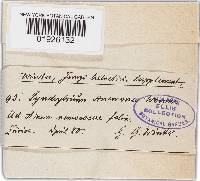 NEW YORK BOTANICAL GARDEN
01926132
Winter, Fungi helvetici. Supplement.
93. Synchytrium Anemones Woronin
Ad Anem. nemorosae folia
Zürich. April 80. G. Winter
ELLIS
COLLECTION
BOTANICAL GARDEN